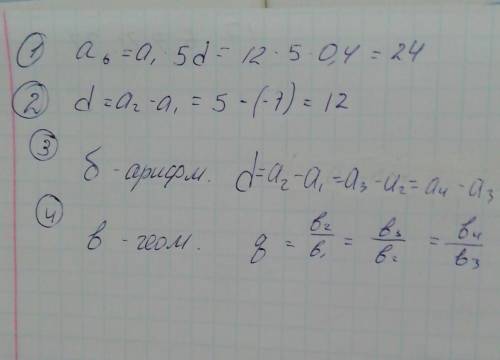 1 a₆ = a₁ 5d = 12 · 5 · 0,4 = 24
2 d = a₂ - a₁ = 5 - (-7) = 12
3 б - арифм. d = a₂ - a₁ = a₃ - a₂ = a₄ - a₃
4 в - геом. q = в₂/в₁ = в₃/в₂ = в₄/в₃